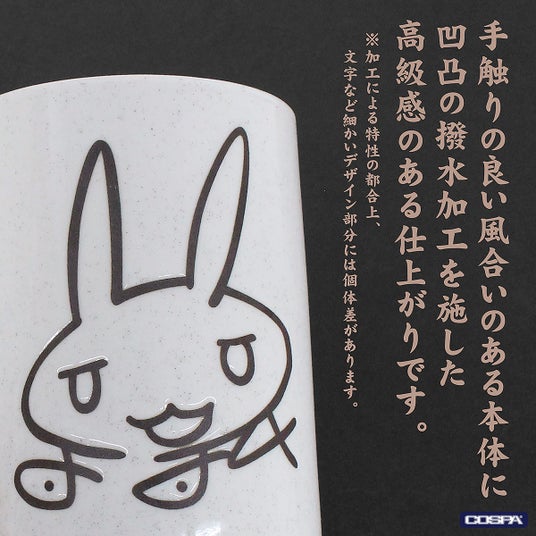 手触りの良い風合いのある本体に
凹凸の撥水加工を施した
高級感のある仕上がりです。
※加工による特性の都合上、
文字など細かいデザイン部分には個体差があります。
COSPA